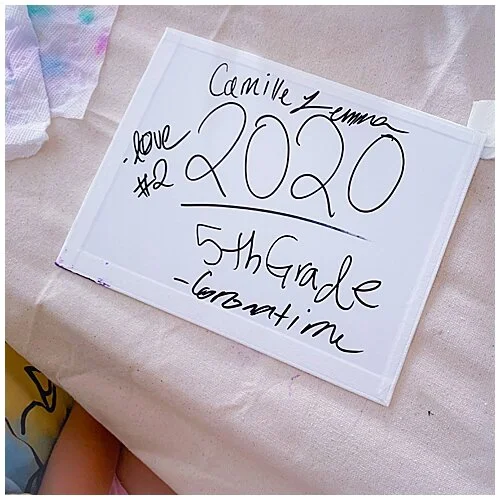 Camille Lemma
2020
.love
#2
5th Grade
-Coronatime